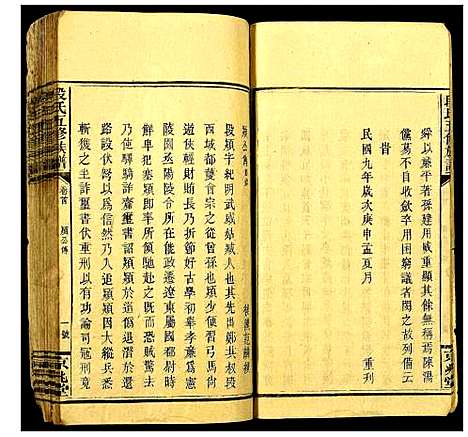 段氏五修族譜
舜以蕩平著孫建用威重顯其餘無焉陳湯
儻蕩不自收斂卒用困窮議者閔之故備列云
旹
民國九年歲次庚申孟夏月
重刋
京兆堂
段熲字紀明武威姑臧人也其先出鄭共叔段
西域都護會宗之從曾孫也熲少便習弓馬尚
游俠輕財賄長乃折節好古學初舉孝廉爲憲
陵園丞陽陵令所在能政遷遼東屬國都尉時
鮮卑犯塞熲即率所領馳赴之既而恐賊驚去
乃使驛騎詐齎璽書詔熲熲於道僞退潛於還
路設伏虜以爲信然乃入追熲熲因大縱兵悉
斬獲之坐詐璽書伏重刑以有功論司寇刑竟
段氏五修族譜
卷首
熲公傳
一號
京兆堂